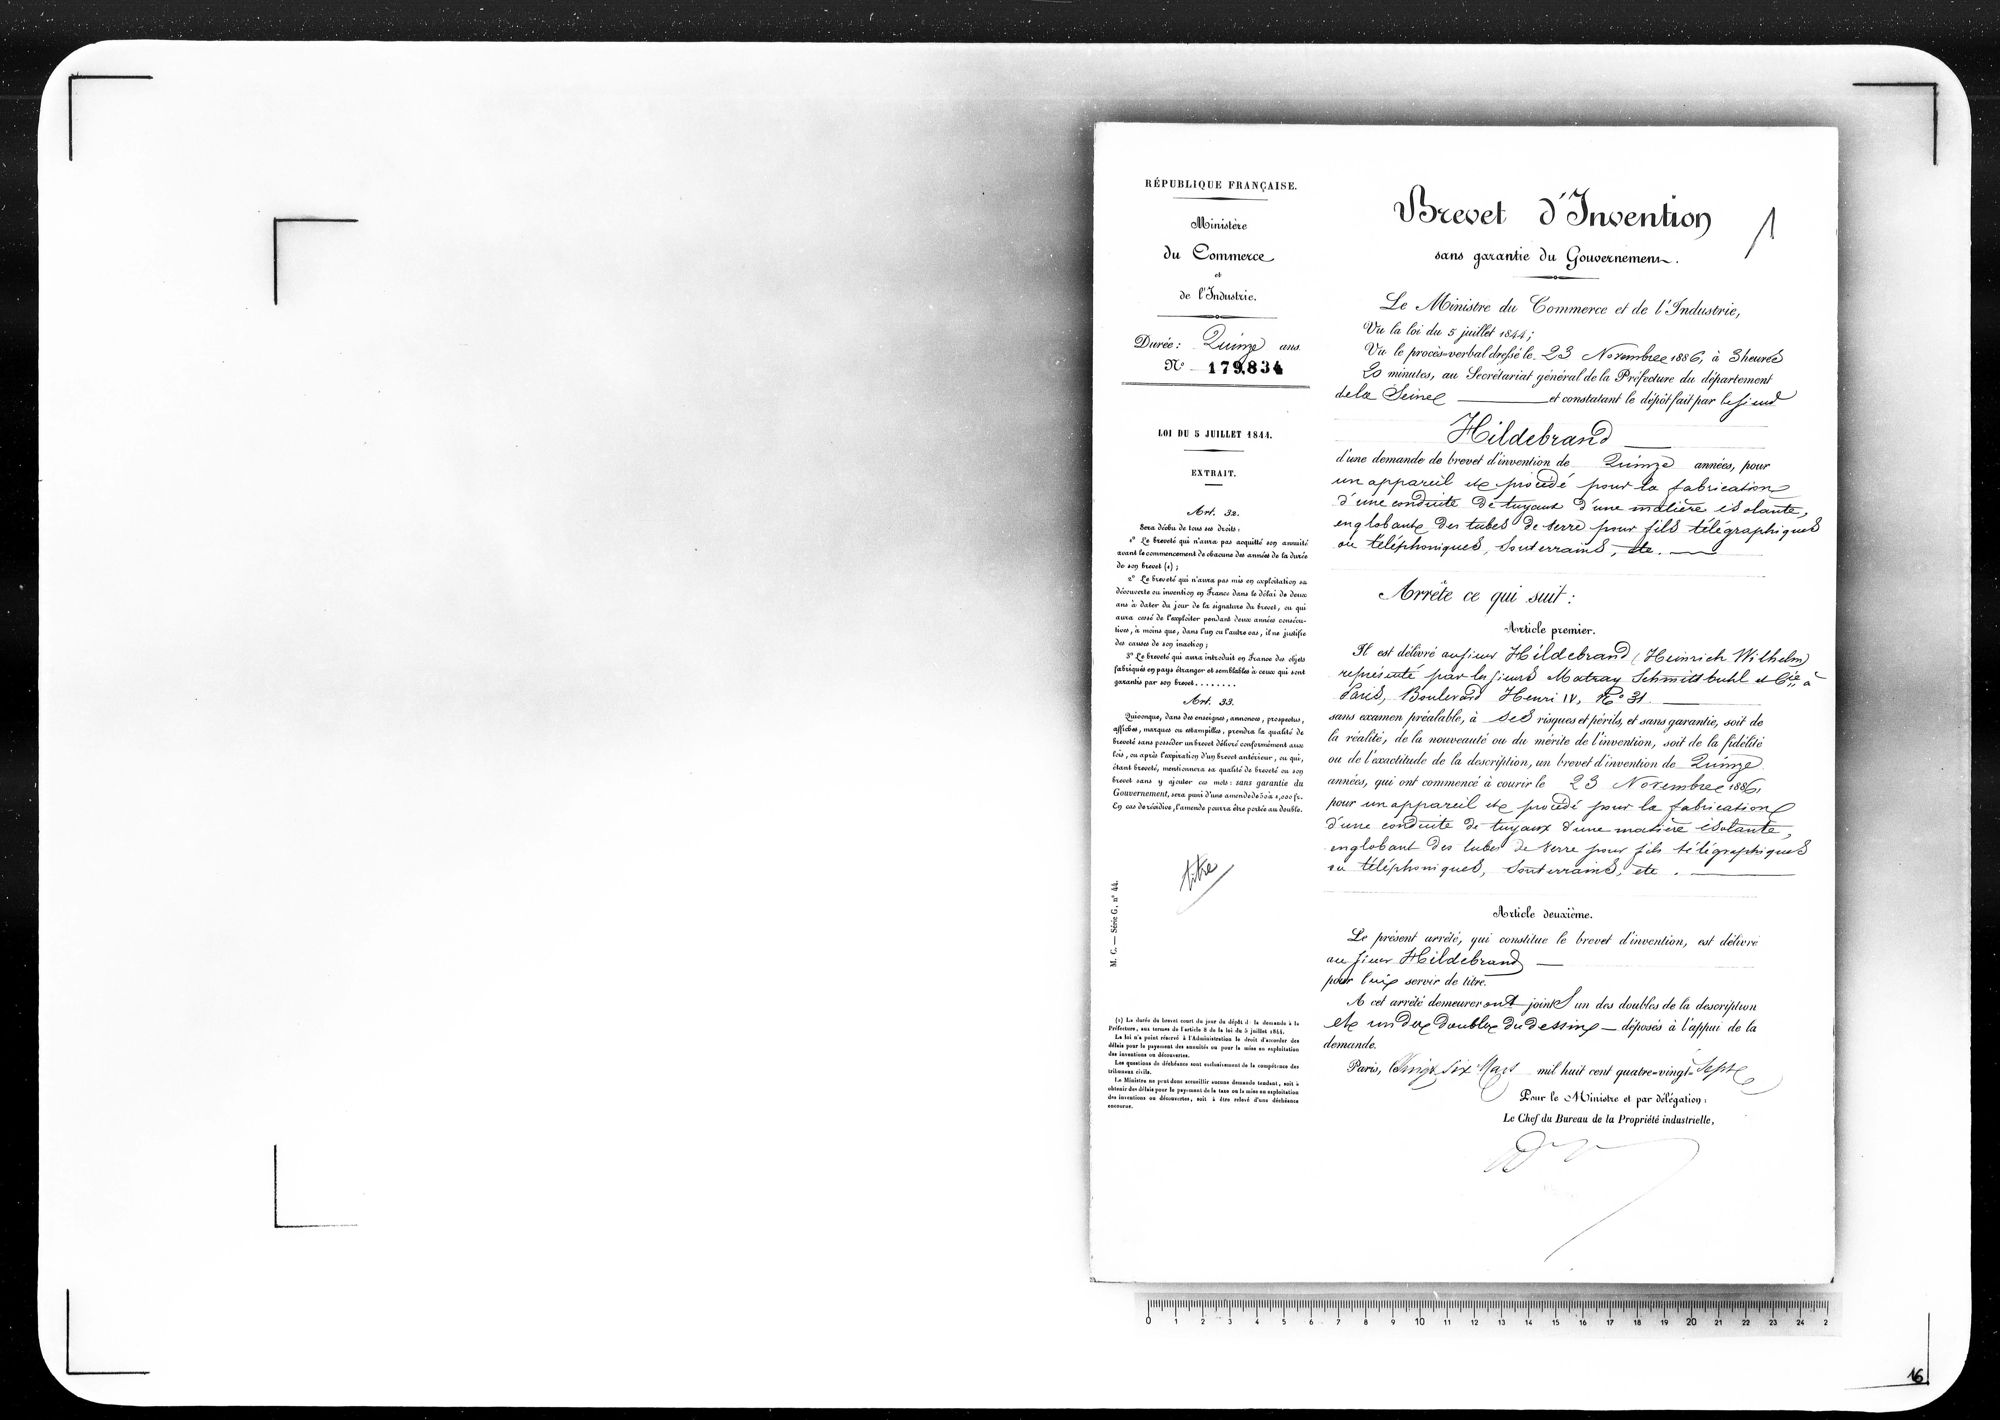 RÉPUBLIQUE FRANÇAISE.
Ministère
du Commerce
et
de l'Industrie.
Durée : Quinze ans.
N° 179,834
LOI DU 5 JUILLET 1844.
EXTRAIT.
Art. 32.
Sera déchu de tous ses droits :
1° Le breveté qui n'aura pas acquitté son annuité
avant le commencement de chacune des années de la durée
de son brevet (1) ;
2° Le breveté qui n'aura pas mis en exploitation sa
découverte ou invention en France dans le délai de deux
ans à dater du jour de la signature du brevet, ou qui
aura cessé de l'exploiter pendant deux années consécu-
tives, à moins que, dans l'un ou l'autre cas, il ne justifie
des causes de son inaction ;
3° Le breveté qui aura introduit en France des objets
fabriqués en pays étranger et semblables à ceux qui sont
garantis par son brevet........
Art. 33.
Quiconque, dans des enseignes, annonces, prospectus,
affiches, marques ou estampilles, prendra la qualité de
breveté sans posséder un brevet délivré conformément aux
lois, ou après l'expiration d'un brevet antérieur, ou qui,
étant breveté, mentionnera sa qualité de breveté ou son
brevet sans y ajouter ces mots : sans garantie du
Gouvernement, sera puni d'une amende de 50 à 1,000 fr.
En cas de récidive, l'amende pourra être portée au double.
titre
M. C. — Série G, n° 44.
(1) La durée du brevet court du jour du dépôt d la demande à la
Préfecture, aux termes de l'article 8 de la loi du 5 juillet 1844.
La loi n'a point réservé à l'Administration le droit d'accorder des
délais pour le payement des annuités ou pour la mise en exploitation
des inventions ou découvertes.
Les questions de déchéance sont exclusivement de la compétence des
tribunaux civils.
Le Ministre ne peut donc accueillir aucune demande tendant, soit à
obtenir des délais pour le payement de la taxe ou la mise en exploitation
des inventions ou découvertes, soit à être relevé d'une déchéance
encourue.
Brevet d'Invention
1
sans garantie du Gouvernement.
Le Ministre du Commerce et de l'Industrie,
Vu la loi du 5 juillet 1844 ;
Vu le procès-verbal dressé le 23 Novembre 1886, à 3 heures
20 minutes, au Secrétariat général de la Préfecture du département
de la Seine et constatant le dépôt fait par le sieur
Hildebrand
d'une demande de brevet d'invention de Quinze années, pour
un appareil et procédé pour la fabrication
d'une conduite de tuyaux d'une matière isolante,
englobant des tubes de verre pour fils télégraphiques
ou téléphoniques, souterrains, etc.
Arrête ce qui suit :
Article premier.
Il est délivré au sieur Hildebrand (Heinrich Wilhelm)
représenté par les sieurs Matray Schmittbuhl et Cie à
Paris, Boulevard Henri IV, N° 31.
sans examen préalable, à ses risques et périls, et sans garantie, soit de
la réalité, de la nouveauté ou du mérite de l'invention, soit de la fidélité
ou de l'exactitude de la description, un brevet d'invention de Quinze
années, qui ont commencé à courir le 23 Novembre 1886,
pour un appareil et procédé pour la fabrication
d'une conduite de tuyaux d'une matière isolante,
englobant des tubes de verre pour fils télégraphiques
ou téléphoniques, souterrains, etc.
Article deuxième.
Le présent arrêté, qui constitue le brevet d'invention, est délivré
au sieur Hildebrand
pour lui servir de titre.
A cet arrêté demeureront joints un des doubles de la description
et un des doubles du dessin déposés à l'appui de la
demande.
Paris, le vingt six Mars mil huit cent quatre-vingt-sept
Pour le Ministre et par délégation :
Le Chef du Bureau de la Propriété industrielle,
0 1 2 3 4 5 6 7 8 9 10 11 12 13 14 15 16 17 18 19 20 21 22 23 24 2
16